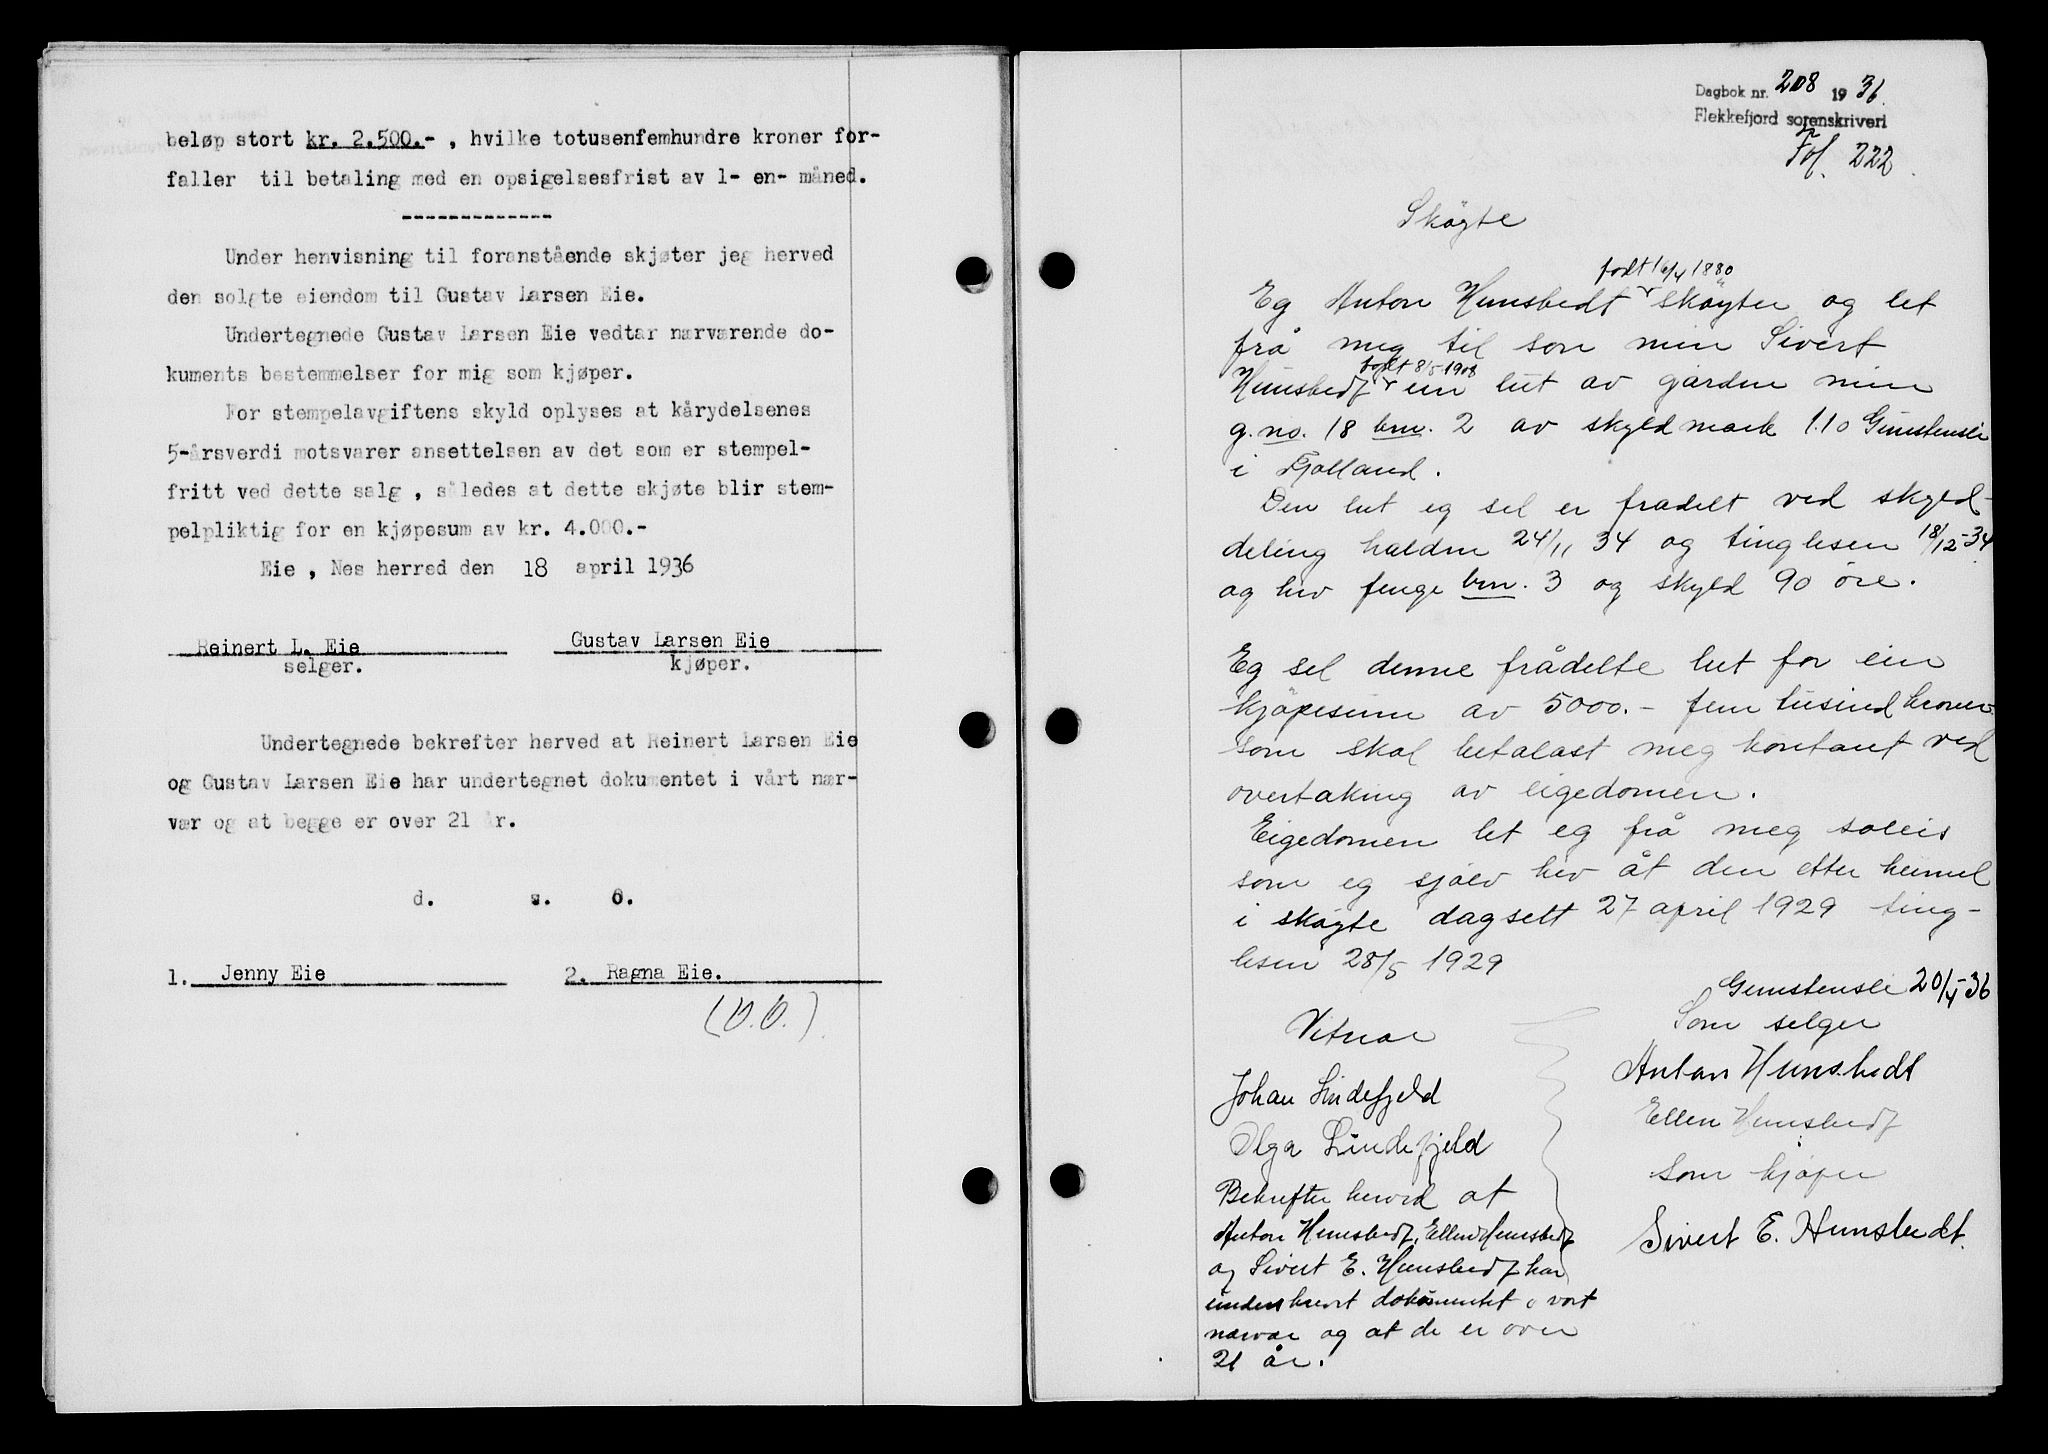 beløp stort kr. 2.500.- , hvilke totusenfemhundre kroner for-
faller til betaling med en opsigelsesfrist av 1- en- måned.
-------------
Under henvisning til foranstående skjøter jeg herved
den solgte eiendom til Gustav Larsen Eie.
Undertegnede Gustav Larsen Eie vedtar nærværende do-
kuments bestemmelser for mig som kjøper.
For stempelavgiftens skyld oplyses at kårydelsenes
5-årsverdi motsvarer ansettelsen av det som er stempel-
fritt ved dette salg , således at dette skjøte blir stem-
pelpliktig for en kjøpesum av kr. 4.000.-
Eie , Nes herred den 18 april 1936
Reinert L. Eie
selger.
Gustav Larsen Eie
kjøper.
Undertegnede bekrefter herved at Reinert Larsen Eie
og Gustav Larsen Eie har undertegnet dokumentet i vårt nær-
vær og at begge er over 21 år.
d. s. o.
1. Jenny Eie
2. Ragna Eie.
Dagbok nr. 208 1936.
Flekkefjord sorenskriveri
Fol. 222
Skøyte
født 16/4 1880
Eg Anton Hunsbedt skøyter og let
frå meg til son min Sivert
født 8/5 1908
Hunsbedt ein lut av garden min
g.no. 18 bnr. 2 av skyldmark 1.10 Ginstensli
i Fjotland.
Den lut eg sel er frådelt ved skyld-
deling halden 24/11 34 og tinglesen 18/12-34
og hev fenge bnr. 3 og skyld 90 öre.
Eg sel denne frådelte lut for ein
kjöpesum av 5000.- fem tusind kroner
som skal betalast meg kontant ved
overtaking av eigedomen.
Eigedomen let eg frå meg soleis
som eg sjölv hev åt den etter heimel
i sköyte dagsett 27 april 1929 ting-
lesen 28/5 1929
Ginstensli 20/4-36
Som selger
Anton Hunsbedt
Ellen Hunsbedt
Som kjöper
Sivert E. Hunsbedt.
Vitnar
Johan Lindefjeld
Olga Lindefjeld
Bekrefter herved at
Anton Hunsbedt, Ellen Hunsbedt
og Sivert E. Hunsbedt har
underskrevet dokumentet i vort
nærvær og at de er over
21 år.